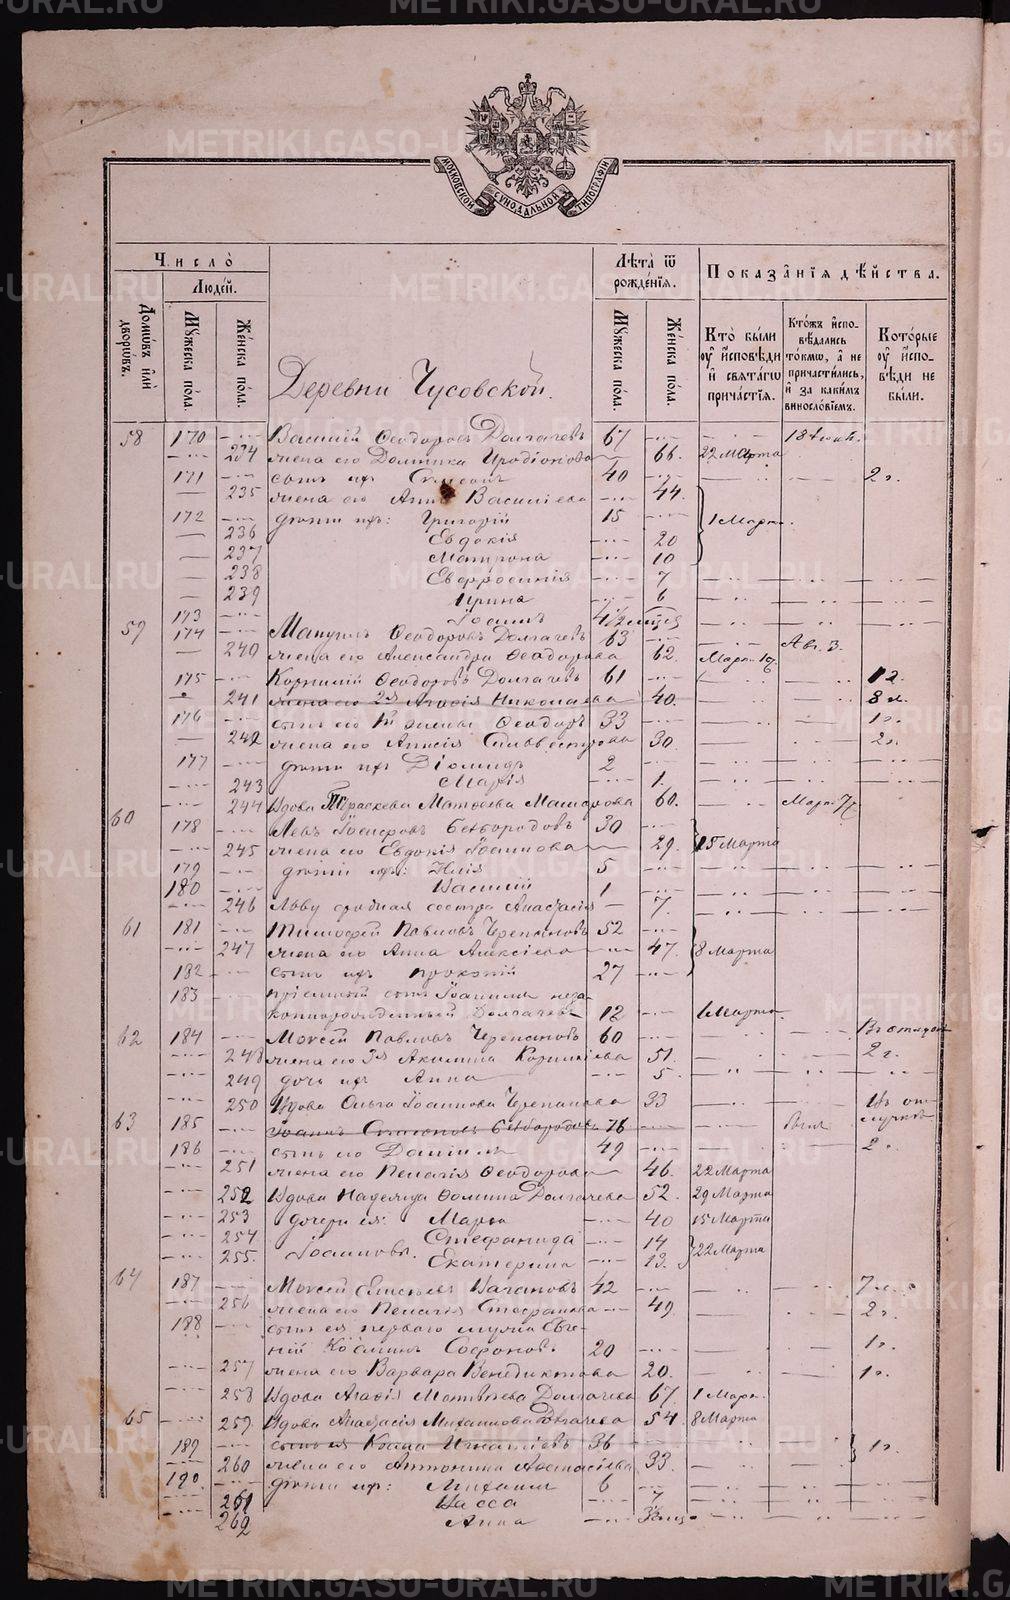 МОСКОВСКОЙ СУНОДАЛЬНОЙ ТИПОГРАФІИ
Число̀
Людей.
Домѡвъ или дворѡвъ.
Мꙋжеска по́ла.
Же́нска по́ла.
Лѣта̀ ѿ рожде́нїѧ.
Мꙋжеска по́ла.
Же́нска по́ла.
Показа́нїѧ дѣ́йства.
Кто̀ бы́ли оу҆ и҆сповѣди и҆ свѧта́гѡ прича́стїѧ.
Кто́жъ и҆спо-
вѣ́дались
то́кмѡ, а҆ не
причасти́лись,
и҆ за каки́мъ
винослові́емъ.
Кото́рые оу҆ и҆спо-
вѣди не бы́ли.
Деревни Чусовской.
58 170 Василій Ѳеодоровъ Долгачевъ 67
234 жена его Домника Иродіонова 66. 22 Марта
171 сынъ ихъ Симеонъ 40 2г.
235 жена его Анна Васильева 44.
172 дѣти ихъ: Григорій 15 1 Марта.
236 Евдокія 20
237 Матрона 10
238 Евфросинія 7
239 Ирина 6
173 Іоаннъ 4 1/2
59 174 Мануилъ Ѳеодоровъ Долгачевъ 63 Авг. 3.
240 жена его Александра Ѳеодорова 62.
175 Корнилій Ѳеодоровъ Долгачевъ 61 1г.
241 жена его 2я Агафія Николаева 40. 8 л.
176 сынъ его Ѳеодоръ 33 1г.
242 жена его Анисія Сильвестрова 30. 2г.
177 дѣти ихъ Діомидъ 2
243 Марія 1.
244 вдова Параскева Матвѣева 60.
60 178 Левъ Іосифовъ Безбородовъ 30
245 жена его Евдокія Іоаннова 29. 15 Марта
179 дѣти ихъ: Илія 5
180 Василій 1
246 Льву сродная сестра Анастасія 7.
61 181 Тимофей Павловъ Черепановъ 52
247 жена его Анна Алексіева 47. 8 Марта
182 сынъ ихъ Прокопій 27
183 пріемный сынъ Іоаннъ неза-
коннорожденный Долгачевъ 12 Марта.
62 184 Моисей Павловъ Черепановъ 60
248 жена его 3я Акилина Корнилiева 51. 2г.
249 дочь ихъ Анна 5.
250 вдова Ольга Іоаннова Черепанова 33 Въ от-
лучкѣ
63 185 Іоаннъ Безбородовъ 76
186 сынъ его Даніилъ 49 2г.
251 жена его Пелагія Ѳеодорова 46. 22 Марта
252 вдова Надежда Ѳомина Долгачева 52. 29 Марта
253 дочери ея: Марѳа 40 15 Марта
254 Іоанновы. Стефанида 14 22 Марта
255. Екатерина 13.
64 187 Моисей Вагановъ 42
256 жена его Пелагія Стефанова 49. 2г.
188 сынъ ея перваго мужа Евге-
ній Софоновъ 20 1г.
257 жена его Варвара Венедиктова 20. 1г.
258 вдова Агафія Матвѣева Долгачева 67. 1 Март.
65 259 вдова Анастасія Михаилова 54. 8 Марта
189 сынъ ея Игнатіевъ 36 1г.
260 жена его Антонина Аѳанасіева 33.
190. дѣти ихъ: Михаилъ 6
261 Васса 7
262 Анна
METRIKI.GASO-URAL.RU